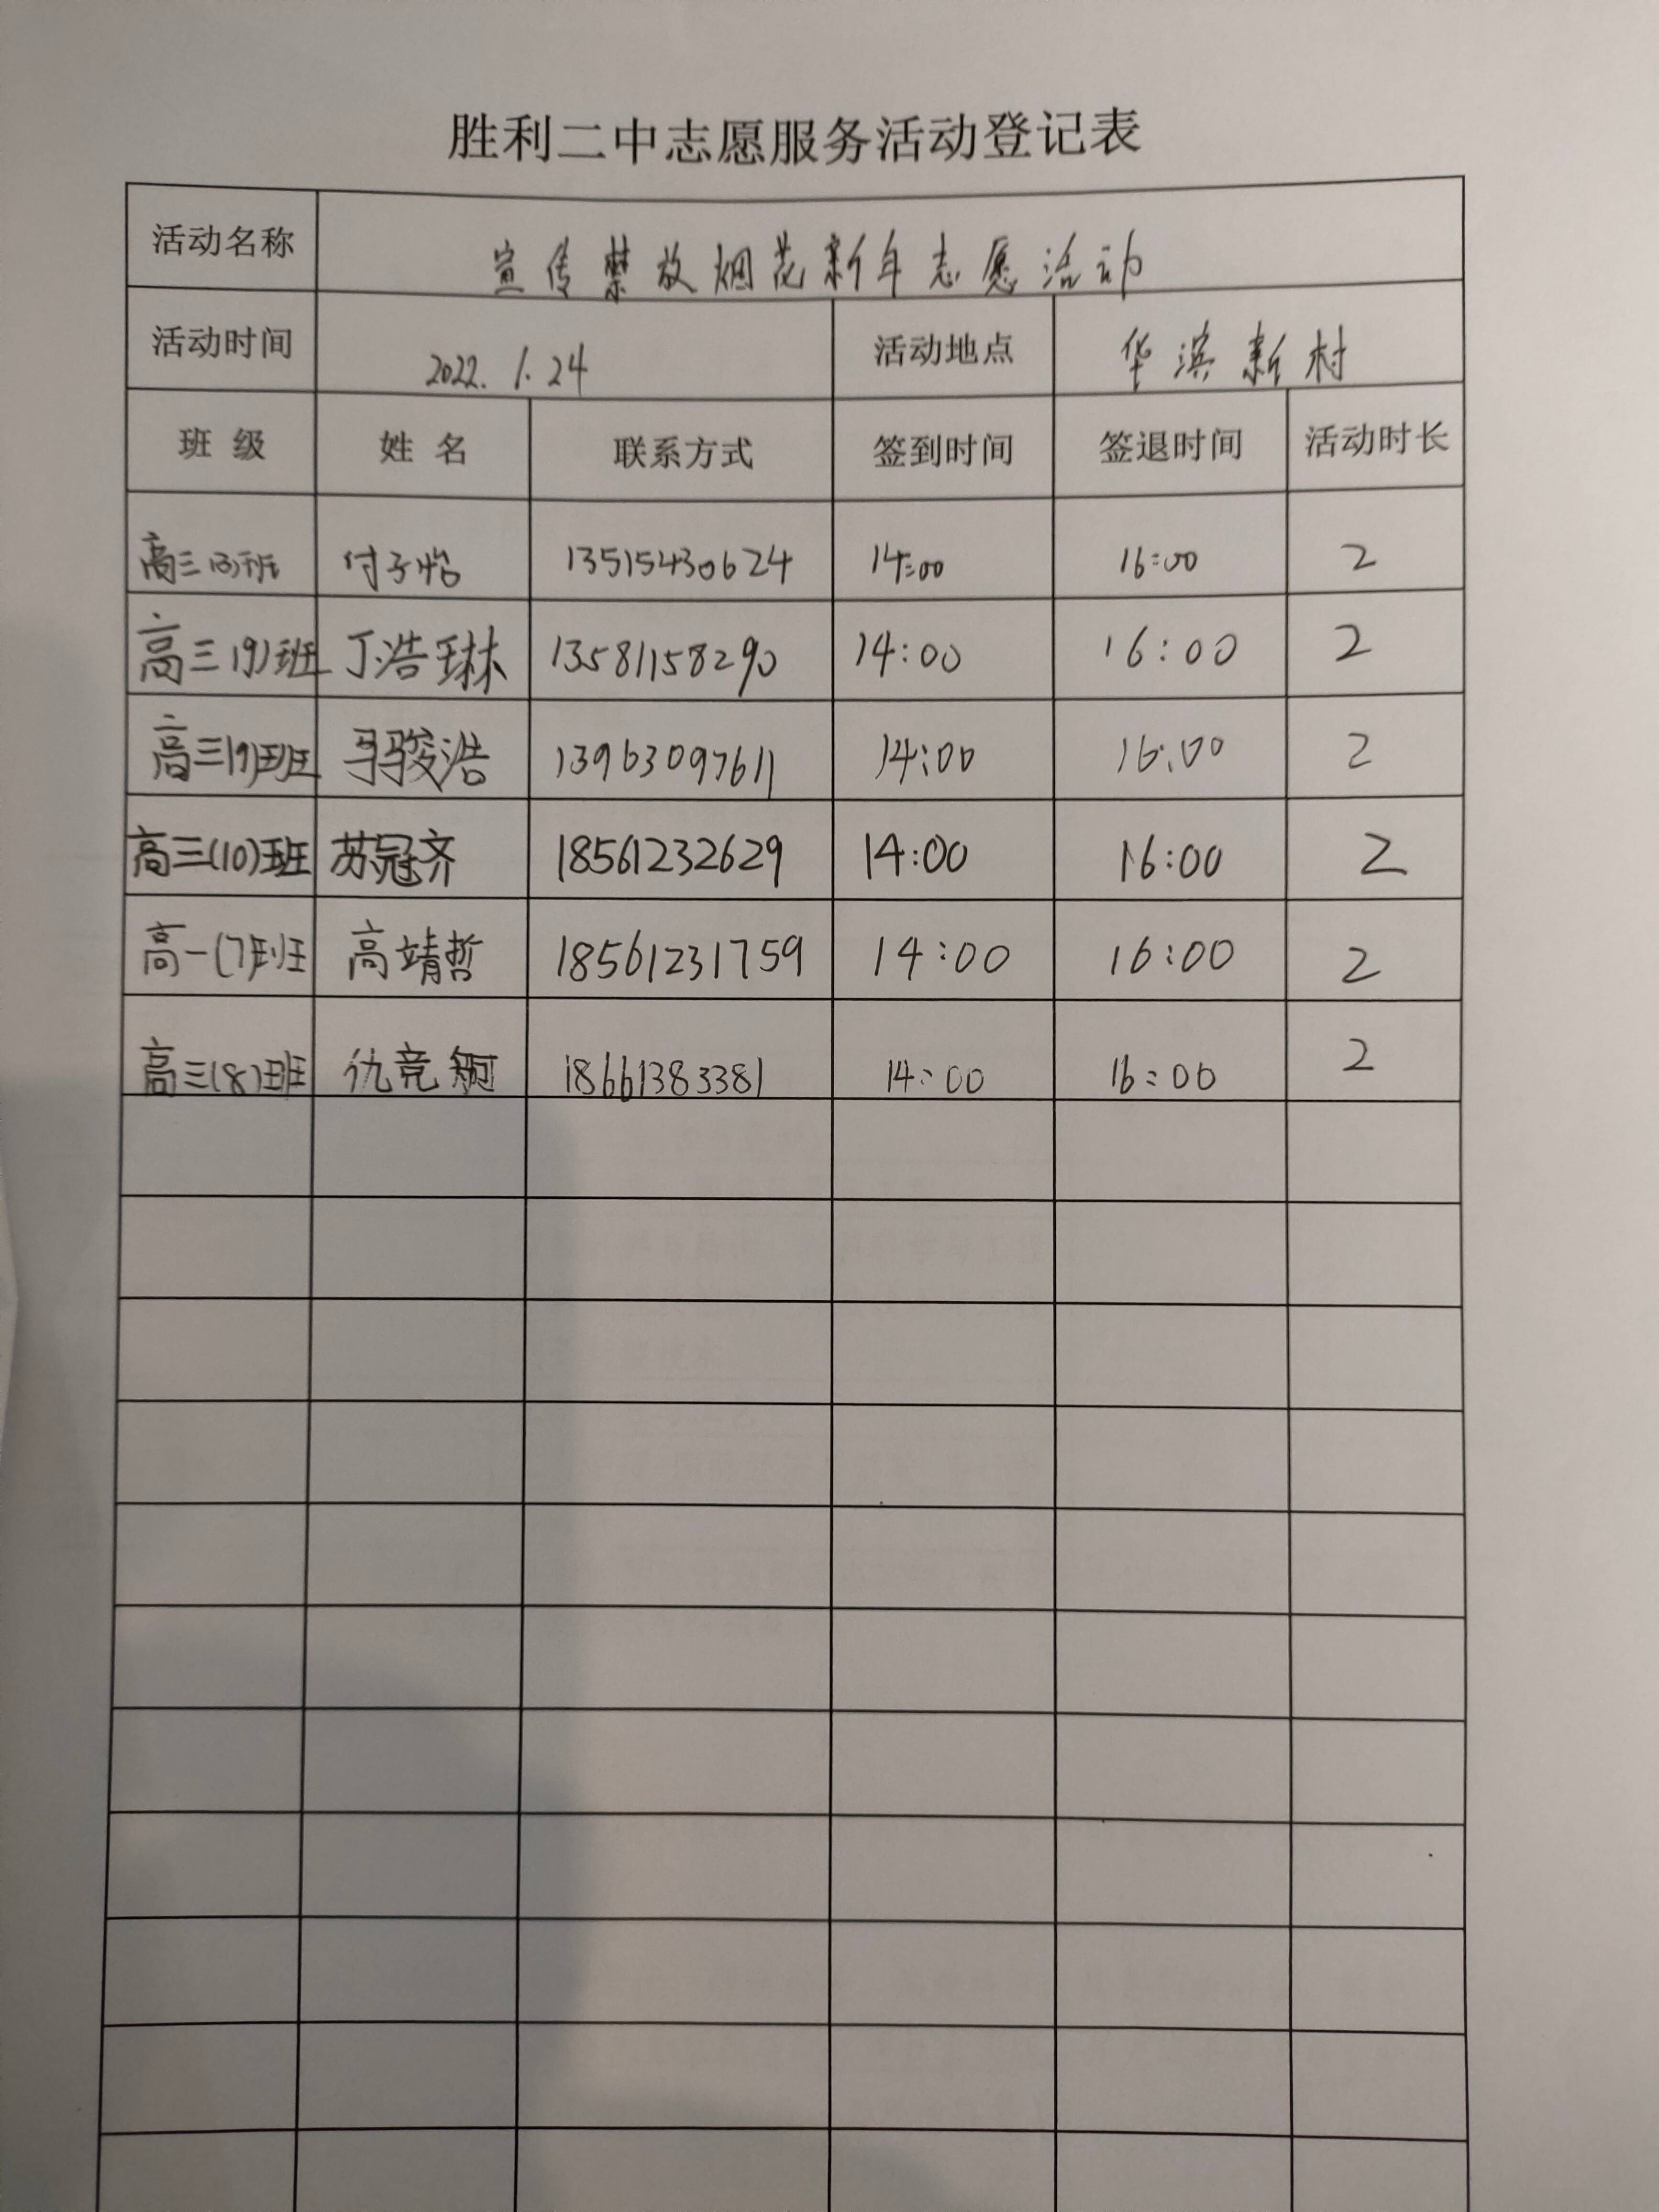 胜利二中志愿服务活动登记表
活动名称 宣传禁放烟花新年志愿活动
活动时间 2022.1.24 活动地点 华滨新村
班 级 姓 名 联系方式 签到时间 签退时间 活动时长
高三(3)班 付子怡 13515430624 14:00 16:00 2
高三(9)班 丁浩琳 13581158290 14:00 16:00 2
高三(9)班 马骏浩 13963097611 14:00 16:00 2
高三(10)班 苏冠齐 18561232629 14:00 16:00 2
高一(7)班 高靖哲 18561231759 14:00 16:00 2
高三(8)班 仇竞 18661383381 14:00 16:00 2